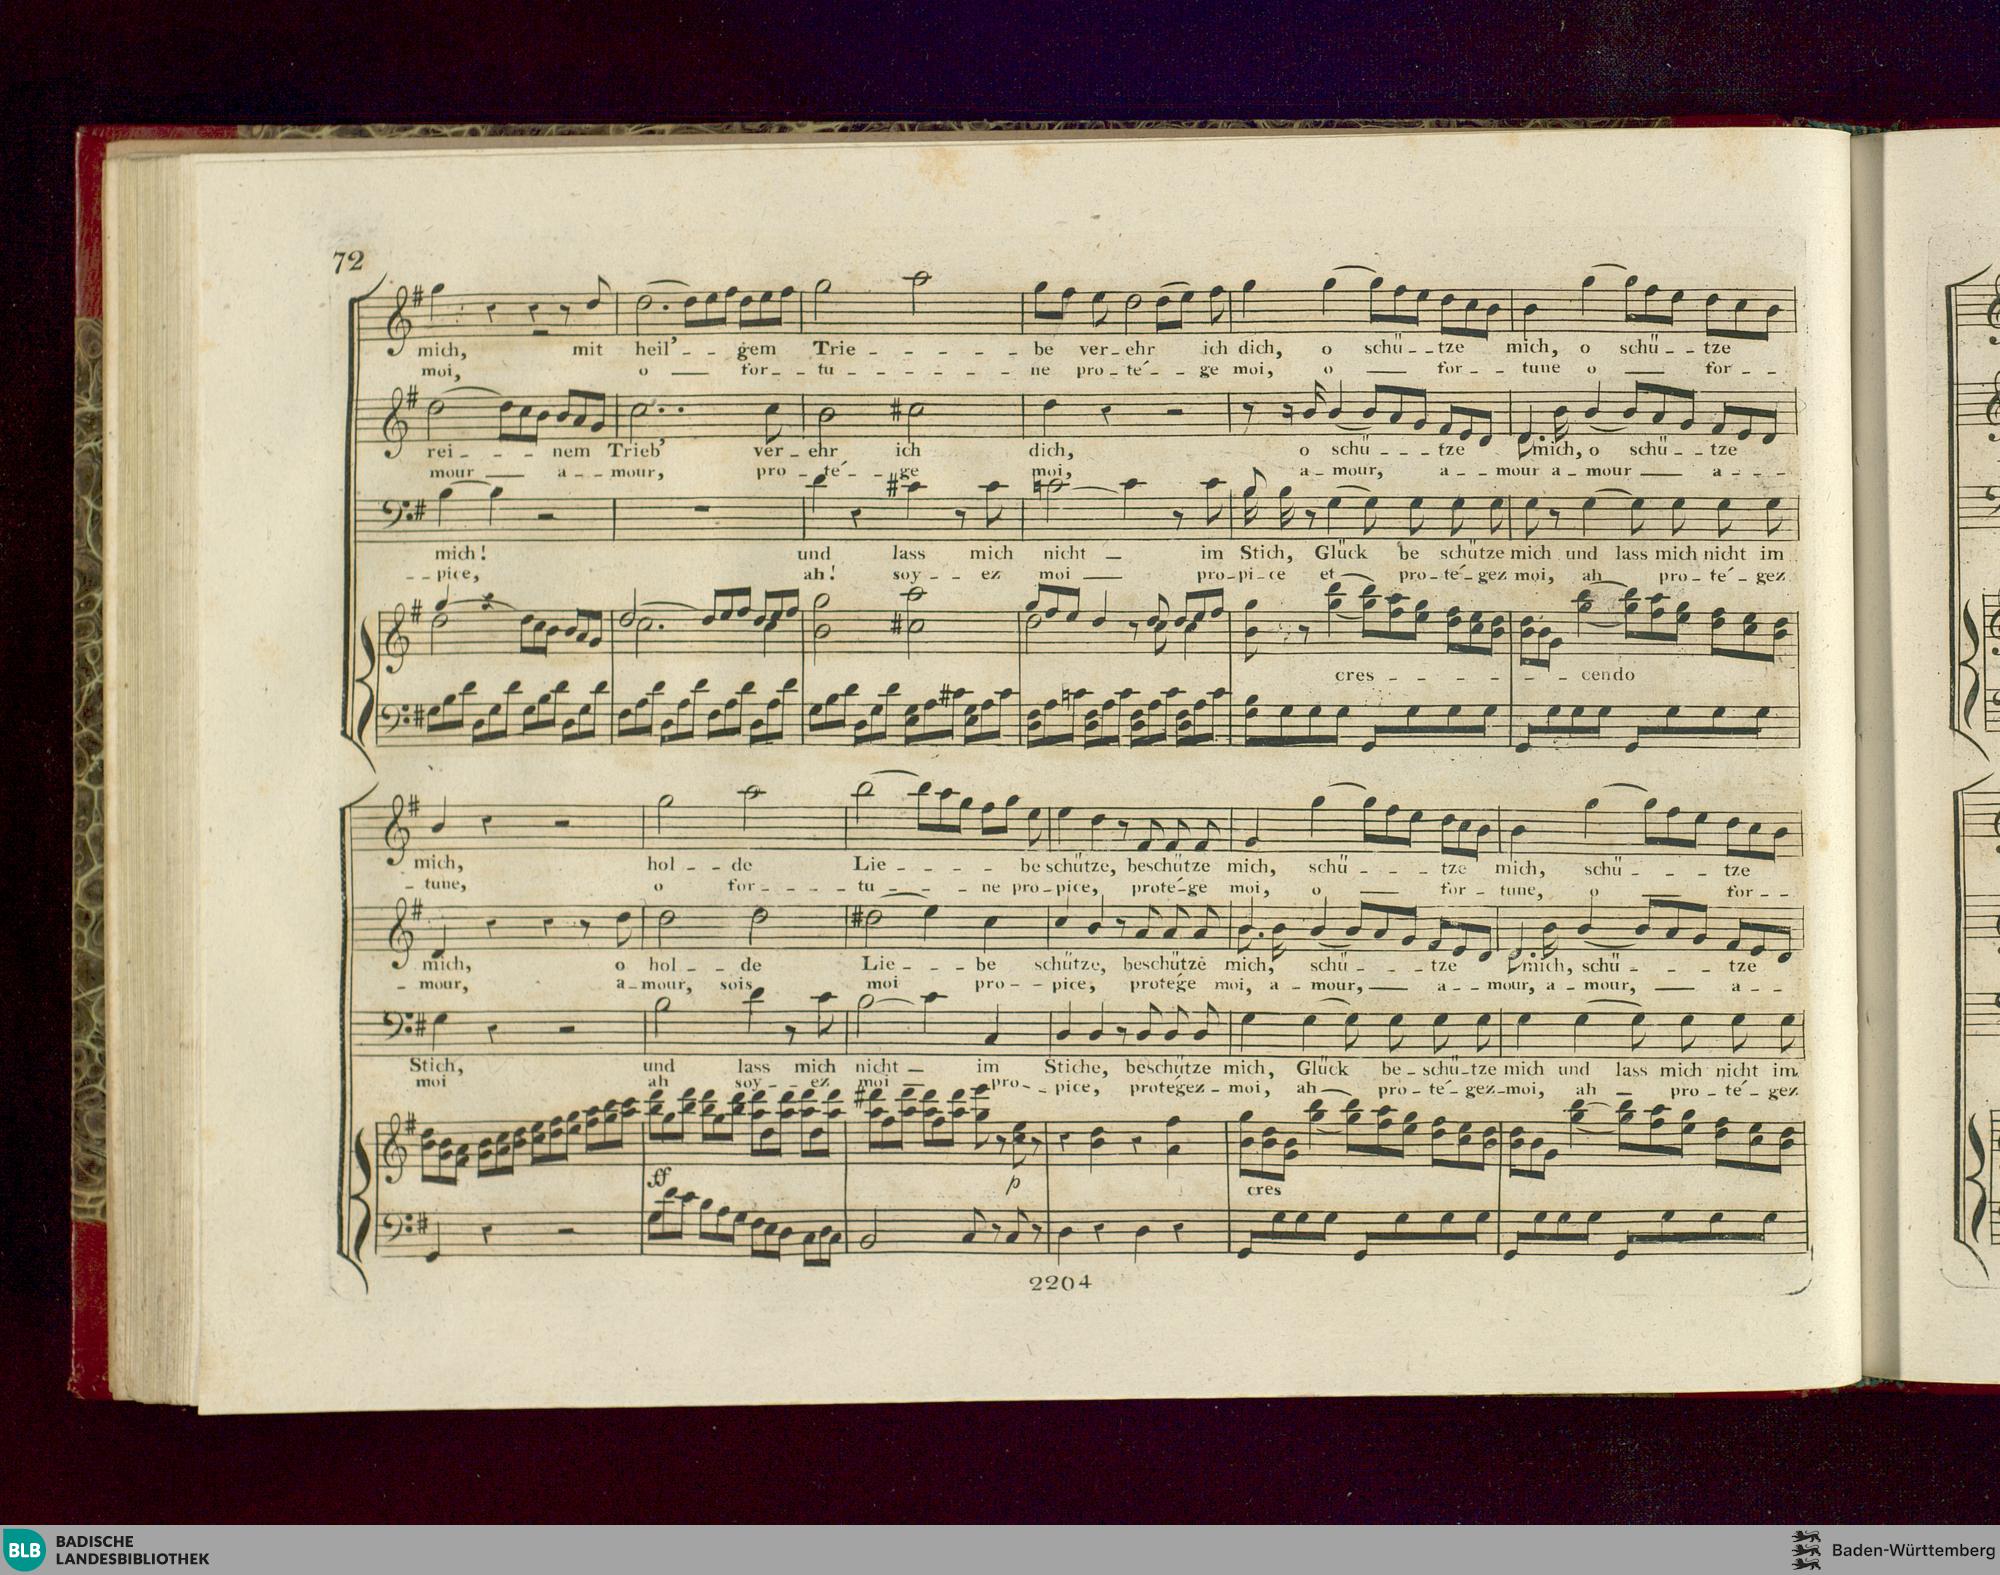 72
mich, mit heil'--gem Trie-----be ver-ehr ich dich, o schü--tze mich, o schü--tze
moi, o — for--tu------ne pro-té--ge moi, o — for--tune o — for--
rei---nem Trieb' ver-ehr ich dich, o schü---tze mich, o schü--tze
mour — a--mour, pro-té-ge moi, a-mour, a--mour a-mour — a--
mich! und lass mich nicht — im Stich, Glück be schütze mich und lass mich nicht im
--pice, ah! soy--ez moi — pro-pi-ce et pro-té-gez moi, ah pro-té-gez
cres--------cendo
mich, hol--de Lie----be schütze, beschütze mich, schü---tze mich, schü---tze
-tune, o for---tu---ne pro-pice, protè-ge moi, o — for-tune, o — for--
mich, o hol--de Lie---be schütze, beschütze mich, schü---tze mich, schü---tze
-mour, a-mour, sois moi pro--pice, protége moi, a-mour, — a--mour, a-mour, — a--
Stich, und lass mich nicht — im Stiche, beschütze mich, Glück be-schü-tze mich und lass mich nicht im
moi ah soy--ez moi — pro--pice, protégez-moi, ah — pro-té-gez-moi, ah — pro-té-gez
ff p cres
2204
BLB BADISCHE
LANDESBIBLIOTHEK
Baden-Württemberg